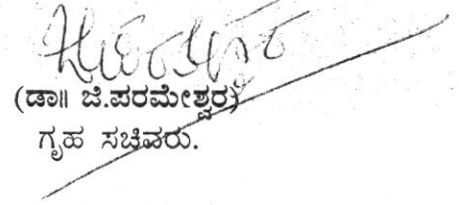 (ಡಾ|| ಜಿ.ಪರಮೇಶ್ವರ)
ಗೃಹ ಸಚಿವರು.